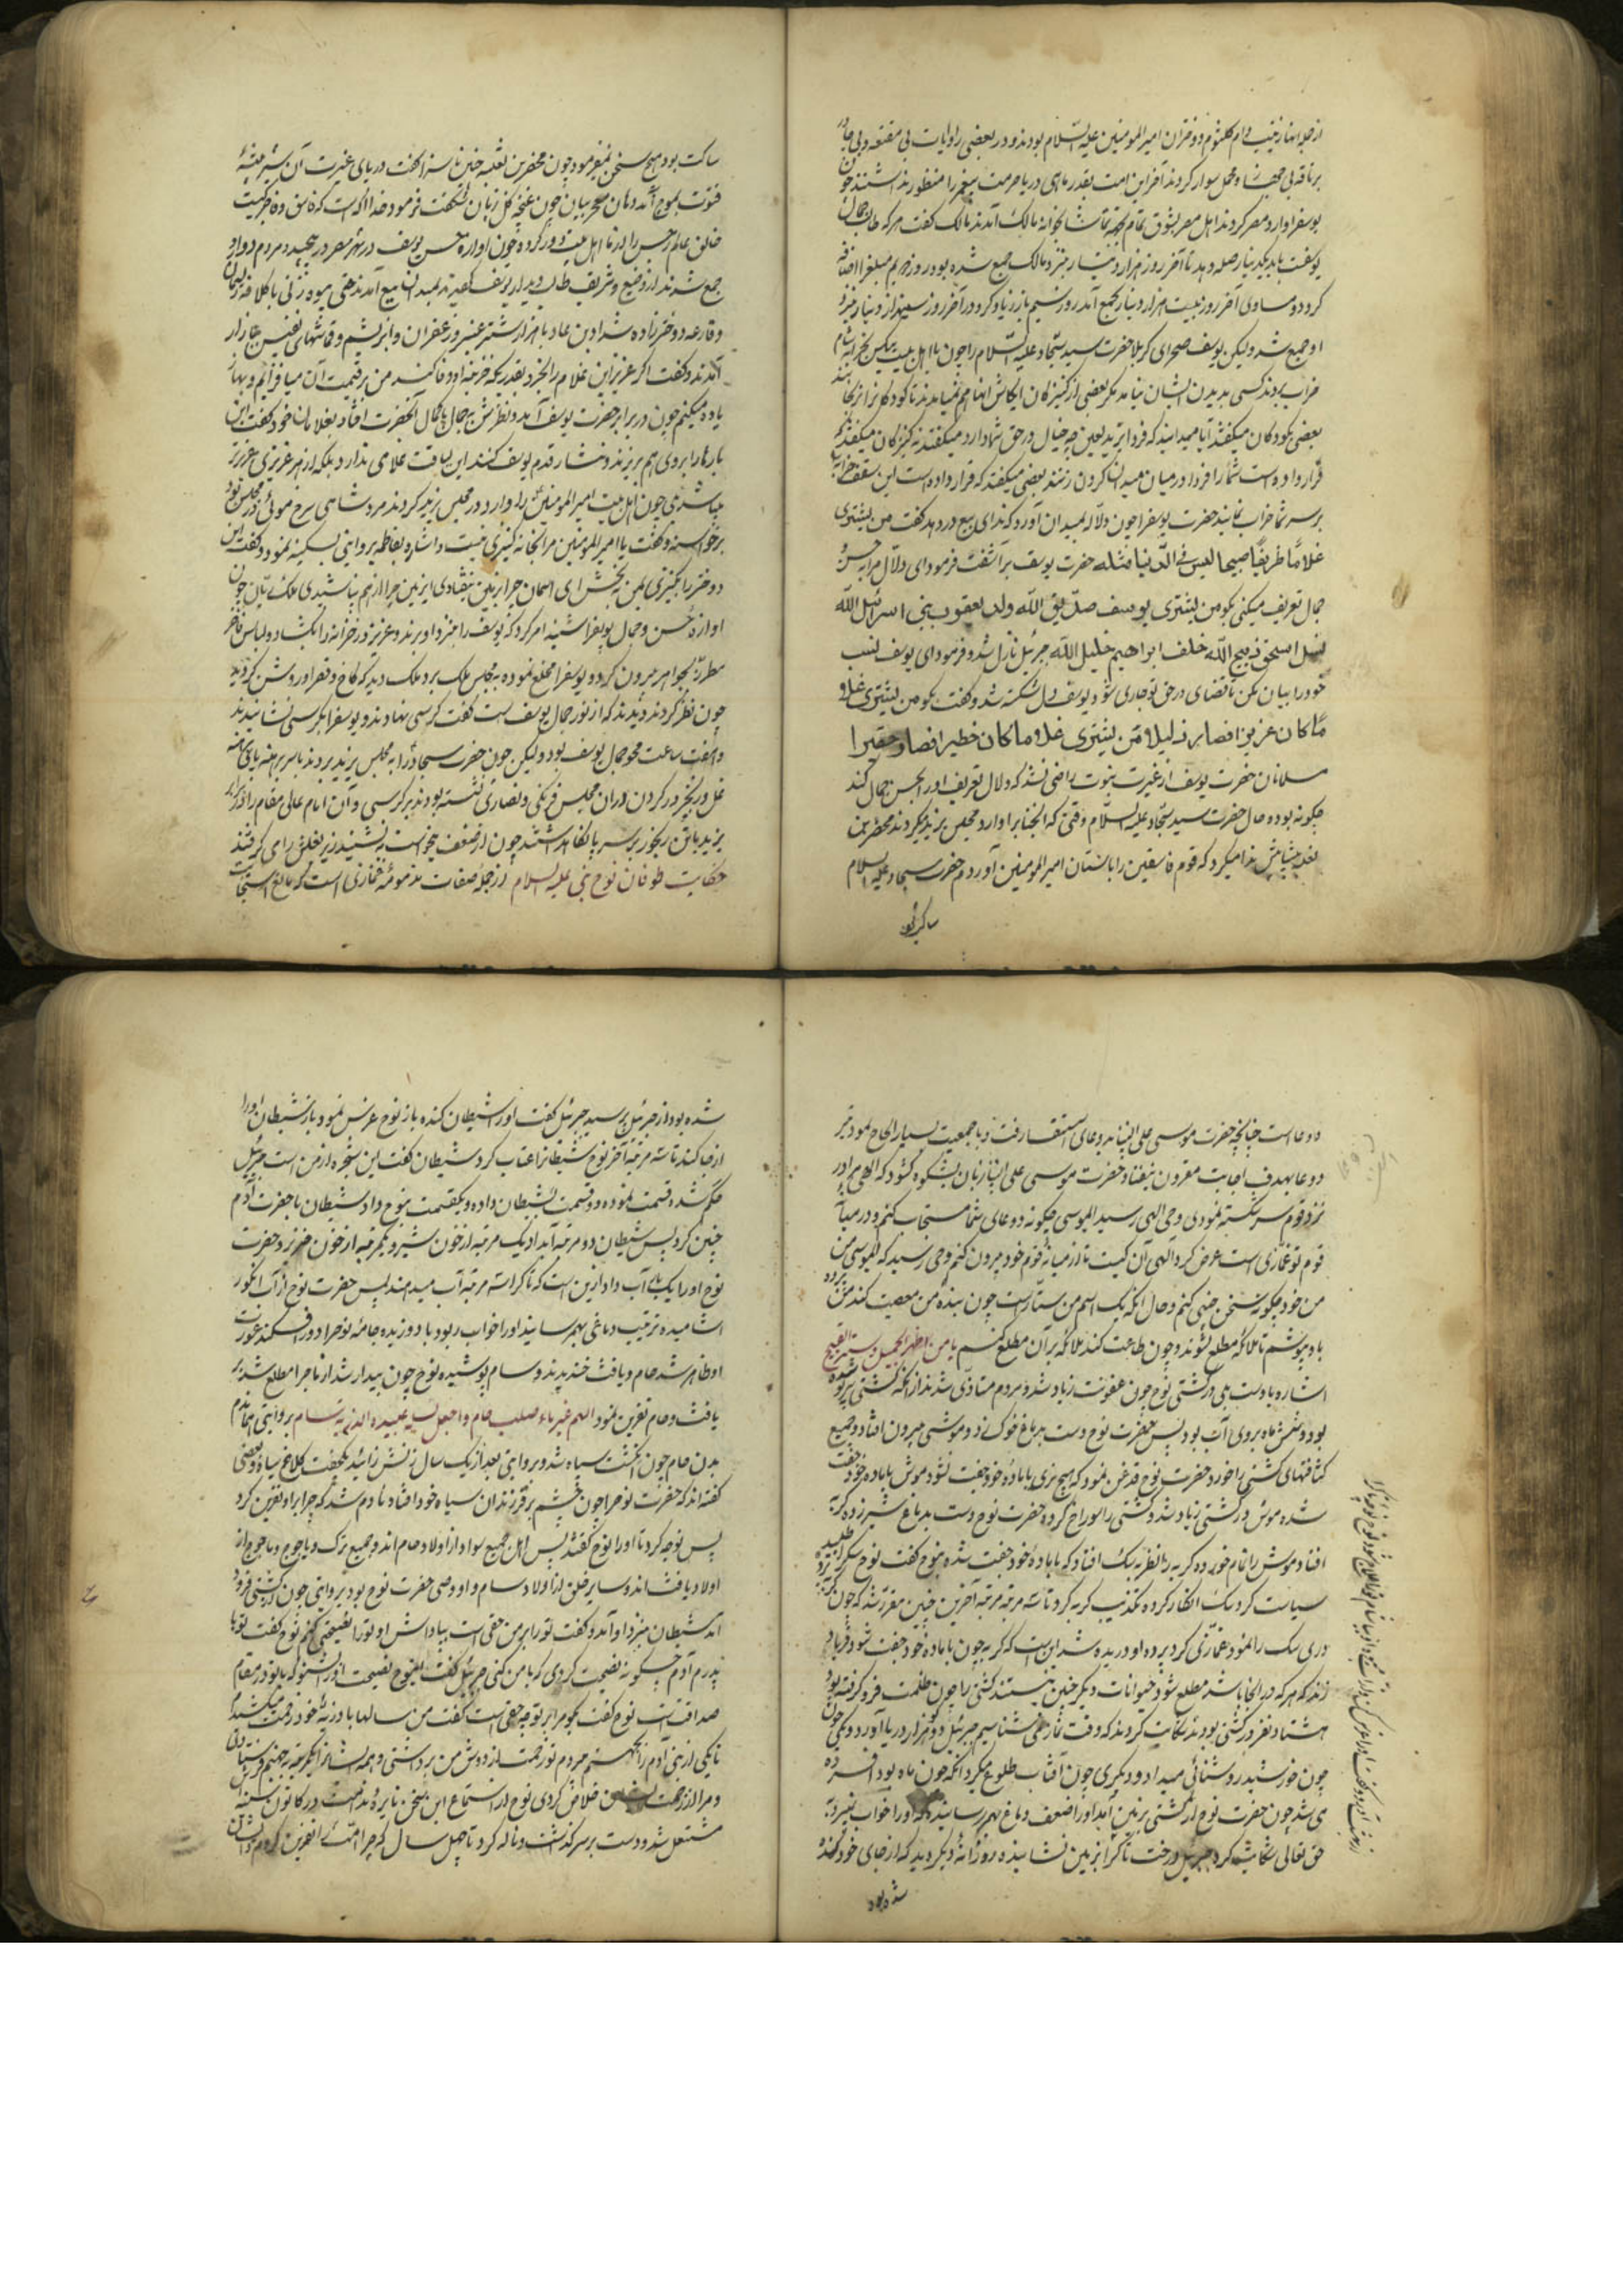 از جمله آنها زینب و ام کلثوم دو دختران امیر المومنین علیه السلام بودند و در بعضی روایات بی مقنعه و بی چادر
بر ناقه بی جهاز و محمل سوار کردند آخر این امت بقدر ماهی دریا حرمت پیغمبر را منظور نداشتند چون
یوسف را وارد مصر کردند اهل مصر بشوق تمام بجهة تماشا بخانه مالک آمدند مالک گفت هر که طالب جمال
یوسفست باید یکدینار صله دهد تا آخر روز هزار دینار نزد مالک جمع شده بود روز دویم مبلغ را اضافه
کرد و مساوی آخر روز بیست هزار دینار بجمع آمد روز سیم باز زیاد کرد در آخر روز سیهزار دینار نزد
او جمع شد ولیکن یوسف صحرای کربلا حضرت سید سجاد علیه السلام را چون با اهل بیت بیکس بخرابه شام
خراب بردند کسی بدیدن ایشان نیامد مگر بعضی از کنیزکان ایکاش آنها هم نمیامدند تا کودکان را نرنجانند
بعضی بکودکان میگفتند آیا میدانید که فردا یزید لعین چه خیال در حق شما دارد میگفتند نه کنیزکان میگفتند
قرار داده است شما را فردا در میان میدان گردن زنند بعضی میگفتند که قرار داده است این سقف خرابه
بر سر شما خراب نمایند حضرت یوسف را چون دلاله بمیدان آورد که ندای بیع در دهد گفت من یشتری
غلاما ظریفا صبیحا لیس فی الدنیا مثله حضرت یوسف بر آشفت فرمود ای دلال مرا به حسن
جمال تعریف میکنی بگو من یشتری یوسف صدیق الله ولد یعقوب نبی اسرائیل الله
نسل اسحق ذبیح الله خلف ابراهیم خلیل الله جبرئیل نازل شد و فرمود ای یوسف نسب
خود را بیان مکن تا قضای در حق تو جاری شود یوسف دل شکسته شد و گفت بگو من یشتری غلاما
ما کان عزیزا فصار ذلیلا و من یشتری غلاما ما کان خطیرا فصار حقیرا
مسلمانان حضرت یوسف از غیرت نبوت راضی نشد که دلال تعریف او را بحسن جمال کند
چگونه بوده حال حضرت سید سجاد علیه السلام وقتی که آنجناب را وارد مجلس یزید میکردند محضر بن
ثعلبه پیشاپیش ندا میکرد که قوم فاسقین را باستان امیر المومنین آوردم حضرت سجاد علیه السلام
ساکت بود
ساکت بود هیچ سخن نمیفرمود چون محضر بن ثعلبه چنین ناسزا گفت دریای غیرت آن شیر بیشهٔ
فتوت بموج آمد دهان معجز بیان چون غنچه گل زبان شکفت فرمود خدا آگاه است که فاسق و ده فرقیست
خالق عالم رجس را از ما اهل بیت دور کرده چون آوازه حسن یوسف در شهر مصر در پیچید مردم دوادو
جمع شدند از وضیع و شریف طالب دیدار یوسف گفتند بمیدان بیع آمدند حتی بیوه زنی با کلافه ریسمان
و قارعه دختر زاده شداد بن عاد با هزار شتر عنبر و زعفران و ابریشم و قماشهای نفیس بیبازار
آمدند و گفت اگر عزیز این غلام را بخرد بقدریکه خزینه او وفا کند من بر قیمت آن میافزایم و بهاز
یاده میکنم چون در برابر حضرت یوسف آمد و نظرش به جمال با کمال آنحضرت افتاد بغلامان خود گفت این
بارها را بروی هم بریزند و نثار قدم یوسف کنند این لیاقت غلامی ندارد بلکه از هر عزیزی عزیزتر
میباشد ی چون اهل بیت امیر المومنین را وارد مجلس یزید کردند مرد شامی سرخ موئی در مجلس بود
برخواست و گفت یا امیر المومنین مرا بخانه کنیزی نیست و اشاره بفاطمه بروایتی بسکینه نمود و گفت این
دختر را بکنیزی بمن ببخش ای آسمان چرا بزمین نیفتادی ای زمین چرا از هم نپاشیدی ملک ریان چون
آوازه حسن و جمال یوسف را شنید امر کرد که یوسف را بنزد او برند و عزیز در خزانه را بگشاد و لباس فاخر
مطرز بجواهر بیرون کرد و یوسف را مخلع نموده به مجلس ملک برد ملک دید که کاخ و قصر او روشن گردید
چون نظر کردند دیدند که از نور جمال یوسف است گفت کرسی نهادند و یوسف را بکرسی نشانیدند
و هفت ساعت محو جمال یوسف بود ولیکن چون حضرت سجاد را به مجلس یزید بردند با سر برهنه با پای برهنه
غل و زنجیر در گردن در آن مجلس فرنگی و نصاری نشسته بودند بر کرسی و آن امام عالی مقام را در برابر
یزید با تن رنجور بر سر پا نگاه داشتند چون از ضعف میخواست بنشیند زیر بغلش را می گرفتند
حکایت طوفان نوح نبی علیه السلام از جمله صفات مذمومه غمازی است که مانع استجابت
دعا است چنانچه حضرت موسی علی نبینا بدعای استسقا رفت و با جمعیت بسیار الحاح نمود تیر
دعا بهدف اجابت مقرون نیفتاد حضرت موسی علی نبینا زبان بشکوه گشود که الهی مرا در
نزد قوم سر شکسته نمودی وحی الهی رسید ای موسی چگونه دعای شما مستجاب کنم و در میان
قوم تو غمازی است عرض کرد الهی آن کیست تا از میانه قوم خود بیرون کنم وحی رسید که ای موسی من
من خود چگونه سخن چینی کنم و حال آنکه یک اسم من ستار است چون بنده من معصیت کند من پرده
باو پوشم تا ملائکه مطلع نشوند و چون طاعت کند ملائکه بر آن مطلع کنم یا من اظهر الجمیل و ستر القبیح
اشاره باوست بلی در کشتی نوح چون عفونت زیاد شد و مردم متأذی شدند از آنکه کشتی پر شده
بود و شش ماه بروی آب بود پس حضرت نوح دست بر دماغ خوک زد و موشی بیرون افتاد و جمیع
کثافتهای کشتی را خورد حضرت نوح قدغن نمود که هیچ نری با ماده خود جفت نشود موش با ماده خود جفت
شده موش در کشتی زیاد شد و کشتی را سوراخ کرده حضرت نوح دست بدماغ شیر زده گربه
افتاد موش را تمام خورده گربه را نظر به سگ افتاد که با ماده خود جفت شده بنوح گفت نوح سگ را طلبید
سیاست کرد سگ انکار کرده تکذیب گربه کرد تا سه مرتبه مرتبه آخرین چنین مقرر شد که چون گربه پرده
دری سگ را نمود و غمازی کرد پرده او دریده شد این است که گربه چون با ماده خود جفت شود فریاد
زند که هر که در آنجا باشد مطلع شود حیوانات دیگر چنین نیستند کشتی را چون ظلمت فرو گرفته بود
هشتاد نفر در کشتی بودند شکایت کردند که وقت نماز نمی شناسیم جبرئیل دو گوهر از دریا آورد و یکی چون
چون خورشید روشنائی میداد و دیگری چون آفتاب طلوع میکرد آنکه چون ماه بود افسرده
می شد چون حضرت نوح از کشتی بزمین آمد او را ضعف دماغ بهم رسانیده که او را خواب نمیبرد به
حق تعالی شکایت کرد جبرئیل درخت تاک را بزمین نشانیده روزانه دیگر دید که از جای خود کنده
شده بود
شده بود از جبرئیل پرسید جبرئیل گفت او را شیطان کنده باز نوح غرس نمود باز شیطان او را
از جا کند تا سه مرتبه آخر نوح شیطان را عتاب کرد شیطان گفت این شجره از من است جبرئیل
حکم شده قسمت نموده دو قسمت بشیطان داده و یکقسمت بنوح داد شیطان با حضرت آدم
چنین کرد پس شیطان دو مرتبه آب داد یک مرتبه از خون شیر و یکمرتبه از خون خنزیر و حضرت
نوح او را یک بار آب داد ازین است که تاک را سه مرتبه آب میدهند پس حضرت نوح از آب انگور
آشامیده ترتیب دماغی بهم رسانید او را خواب ربود باد وزیده جامه نوح را دور افکند عورت
او ظاهر شد حام و یافث خندیدند و سام پوشیده نوح چون بیدار شد از ماجرا مطلع شد بر
یافث و حام نفرین نمود اللهم غیر ماء صلب حام و اجعل نسله عبیدا لذریة سام بروایتی
بدن حام چون انگشت سیاه شد و بروایتی بعد از یک سال زنش زائید بچه جفت کلاغ سیاه و بعضی
گفته اند که حضرت نوح را چون چشم بر فرزندان سیاه خود افتاد نادم شد که چرا بر او نفرین کرد
پس نوحه کرد تا او را نوح گفتند پس اهل جمیع سودان از اولاد حام اند و جمیع ترک و یاجوج و ماجوج از
اولاد یافث اند و سایر خلق از اولاد سام و او وصی حضرت نوح بود بروایتی چون از کشتی فرود
آمد شیطان بنزد او آمد و گفت تو را بر من حقی است بپاداش او تو را نصیحتی کنم نوح گفت تو با
پدرم آدم چگونه نصیحت کردی که با من کنی جبرئیل گفت ای نوح نصیحت او را بشنو که با تو در مقام
صداقت است نوح گفت بگو مرا بر تو چه حقی است گفت من سالها با ذریه خود زحمت میکشیدم
تا یکی از بنی آدم را بجهنم بردم تو زحمت از دوش من برداشتی و همه ایشان را یکمرتبه بجهنم فرستادی
و مرا از زحمت خلاص کردی نوح از استماع این سخن نایره ندامت در کانون سینه
مشتعل شد و دست بر سر گذاشت و ناله کرد تا چهل سال که چرا امت را نفرین کردم